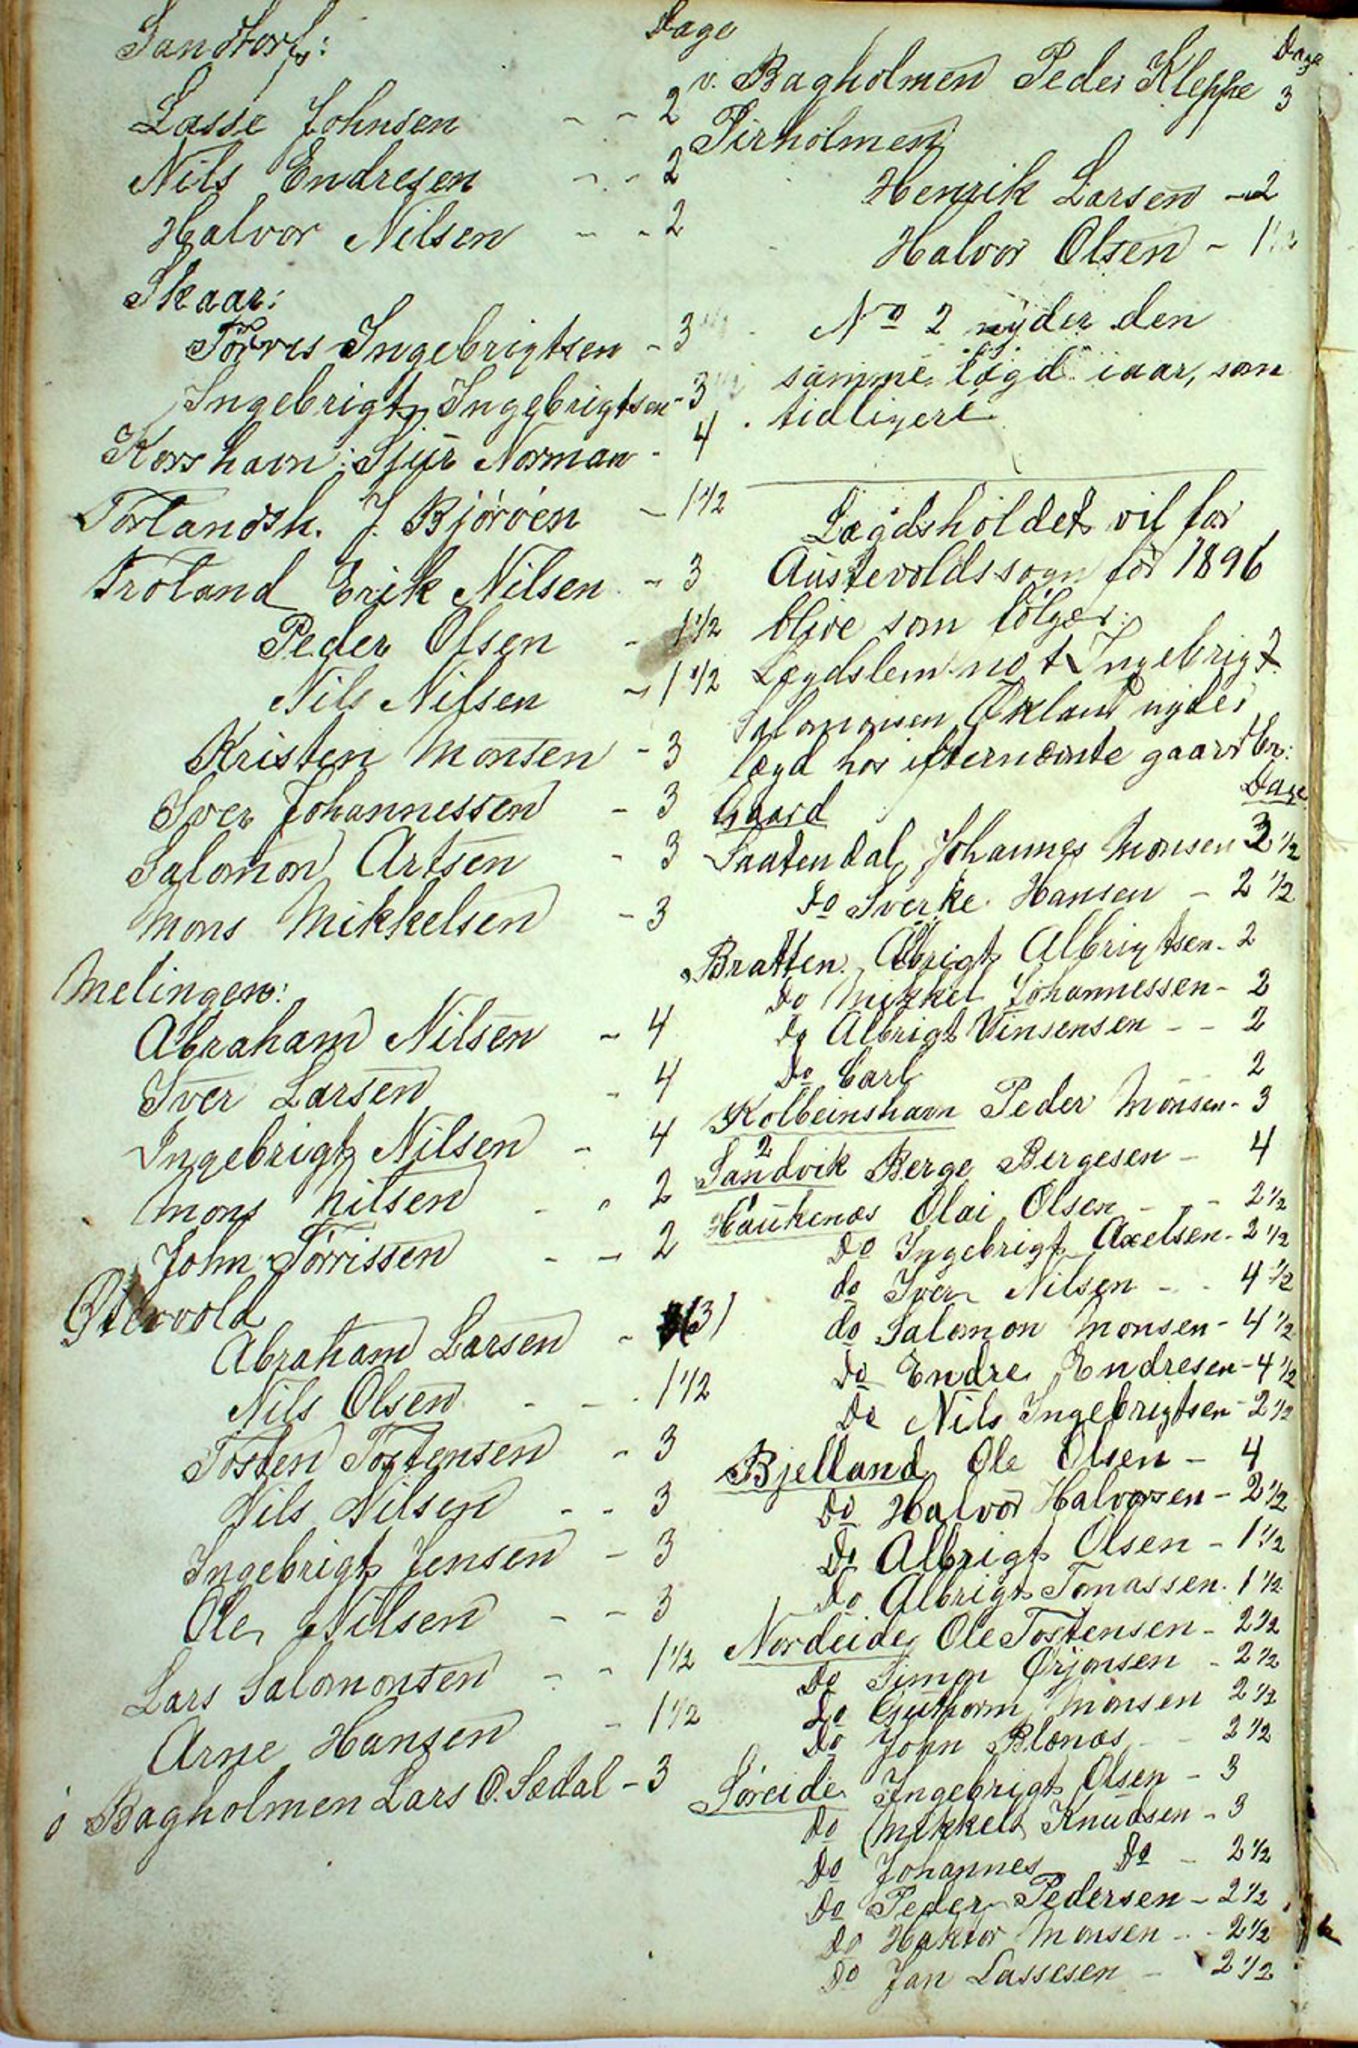 Sandtorf: Dage
Lasse Johnsen - - 2
Nils Endresen - - 2
Halvor Nilsen - - 2
Skaar:
Törris Ingebrigtsen - 3
Ingebrigt Ingebrigtsen - 3
Korshavn: Sjur Norman - 4
Torlandsh. J. Björöen - 1 1/2
Troland Erik Nilsen - 3
Peder Olsen - 1 1/2
Nils Nilsen - 1 1/2
Kristen Monsen - 3
Iver Johannessen - 3
Salomon Artsen - 3
Mons Mikkelsen - 3
Melingen:
Abraham Nilsen - 4
Iver Larsen - 4
Ingebrigt Nilsen - 4
Mons Nilsen - - 2
John Törrissen - - 2
Östervold
Abraham Larsen - (3)
Nils Olsen - - 1 1/2
Tosten Tostensen - 3
Nils Nilsen - - 3
Ingebrigt Jensen - 3
Ole Nilsen - - 3
Lars Salomonsen - - 1 1/2
Arne Hansen - 1 1/2
ö Bagholmen Lars O. Sædal - 3
Dage
v. Bagholmen Peder Kleppe 3
Pirholmen
Henrik Larsen - 2
Halvor Olsen - 1 1/2
No 2 nyder den
samme lægd iaar, som
tidligere
Lægdsholdet vil for
Austevoldssogn for 1896
blive som fölger:
Lægdslem no 1 Ingebrigt
Salomonsen Økland nyder
lægd hos efternævnte gaardbr:
Gaard Dage
Saatendal Johannes Monsen 3 1/2
do Sverke Hansen - 2 1/2
Bratten Albrigt Albrigtsen - 2
do Mikkel Johannessen - 2
do Albrigt Vinsensen - - 2
do Carl 2
Kolbeinshavn Peder Monsen - 3
Sandvik Berge Bergesen - 4
Haukenæs Olai Olsen - - 2 1/2
do Ingebrigt Axelsen - 2 1/2
do Iver Nilsen - - 4 1/2
do Salomon Monsen - 4 1/2
do Endre Endresen - 4 1/2
do Nils Ingebrigtsen - 2 1/2
Bjelland Ole Olsen - 4
do Halvor Halvorsen - 2 1/2
do Albrigt Olsen - 1 1/2
do Albrigt Tomassen - 1 1/2
Nordeide Ole Tostensen - 2 1/2
do Simon Örjansen - 2 1/2
do Guthorm Monsen 2 1/2
do John Blænæs - 2 1/2
Söreide Ingebrigt Olsen - 3
do Mikkel Knudsen - 3
do Johannes do - 2 1/2
do Peder Pedersen - 2 1/2
do Haktor Monsen - - 2 1/2
do Jan Lassesen - 2 1/2